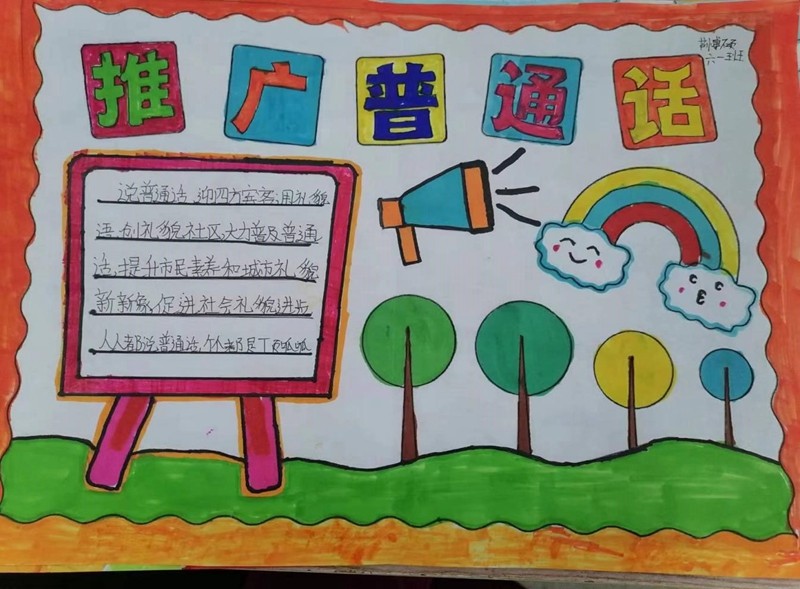 推广普通话
六一班
说普通话,迎四方宾客;用礼貌
语,创礼貌社区,大力普及普通
话,提升市民素养和城市礼貌
新形象,促进社会礼貌进步
人人都说普通话,个个都是顶呱呱